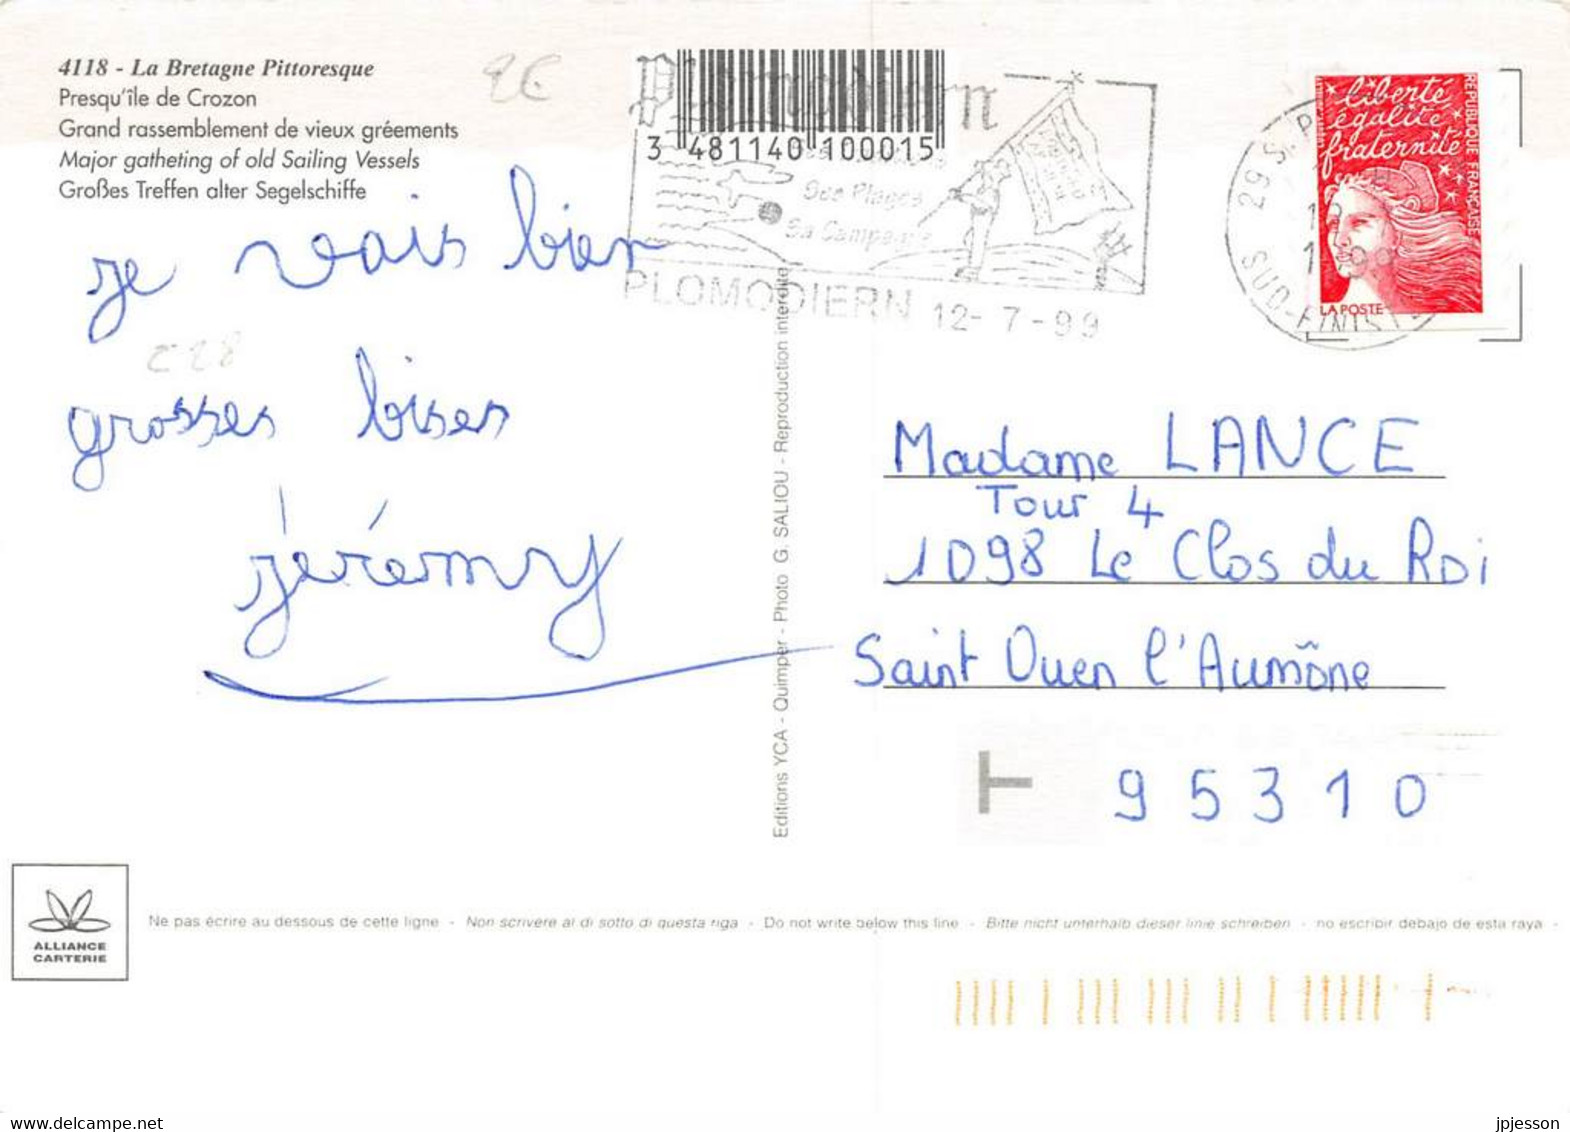 4118 - La Bretagne Pittoresque
Presqu'île de Crozon
Grand rassemblement de vieux gréements
Major gatheting of old Sailing Vessels
Großes Treffen alter Segelschiffe
2€
Plomodiern
3 481140 100015
Ses Plages
Sa Campagne
PLOMODIERN 12-7-99
liberté
égalité
fraternité
REPUBLIQUE FRANÇAISE
LA POSTE
29 S.P.
SUD-FINIST
je vais bien
C28
grosses bises
jérémy
Editions YCA - Quimper - Photo G. SALIOU - Reproduction interdite
Madame LANCE
Tour 4
1098 Le Clos du Roi
Saint Ouen l'Aumône
T
95310
ALLIANCE
CARTERIE
Ne pas écrire au dessous de cette ligne - Non scrivere al di sotto di questa riga - Do not write below this line - Bitte nicht unterhalb dieser linie schreiben - no escribir debajo de esta raya -
delcampe.net
jpjesson